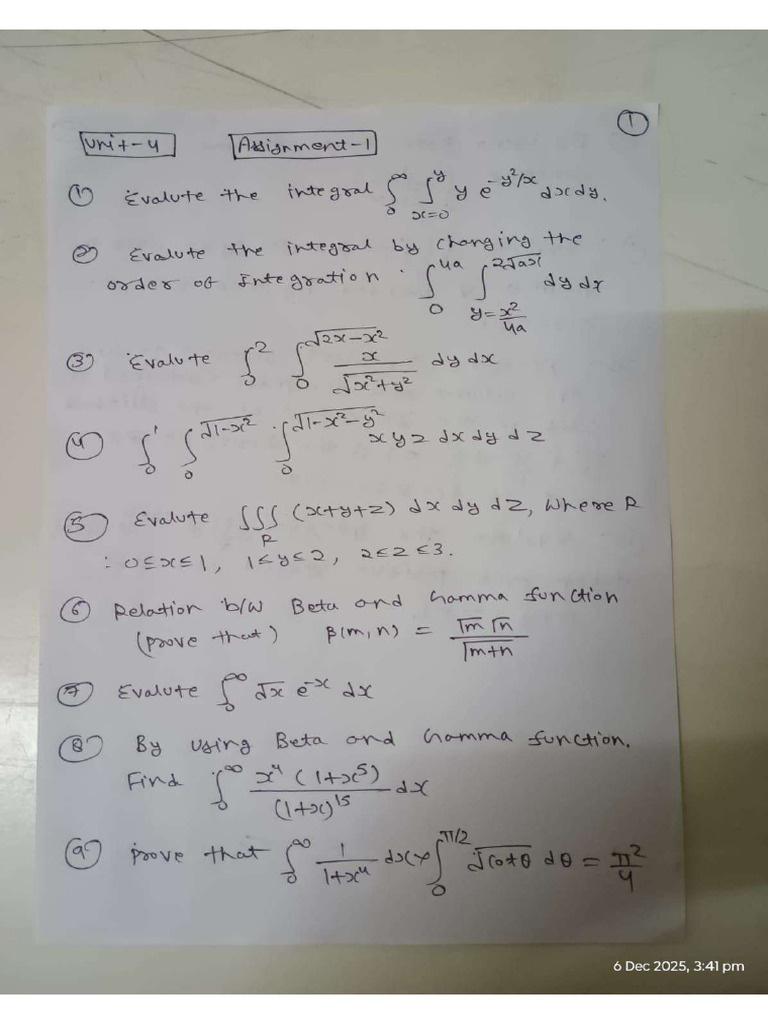 ①
Unit-4 Assignment-1
① Evalute the integral ∫₀^∞ ∫_{x=0}^y y e^{-y²/x} dx dy.
② Evalute the integral by changing the
order of Integration . ∫₀^{4a} ∫_{y=x²/4a}^{2√ax} dy dx
③ Evalute ∫₀² ∫₀^{√2x-x²} x/√x²+y² dy dx
④ ∫₀¹ ∫₀^{√1-x²} ∫₀^{√1-x²-y²} xyz dx dy dz
⑤ Evalute ∭_R (x+y+z) dx dy dz, where R
: 0≤x≤1, 1≤y≤2, 2≤z≤3.
⑥ Relation b/w Beta and Gamma function
(prove that) β(m,n) = Γm Γn / Γm+n
⑦ Evalute ∫₀^∞ √x e^{-x} dx
⑧ By using Beta and Gamma function.
Find ∫₀^∞ x⁴(1+x⁵)/(1+x)¹⁵ dx
⑨ Prove that ∫₀^∞ 1/1+x⁴ dx × ∫₀^{π/2} √cotθ dθ = π²/4
6 Dec 2025, 3:41 pm